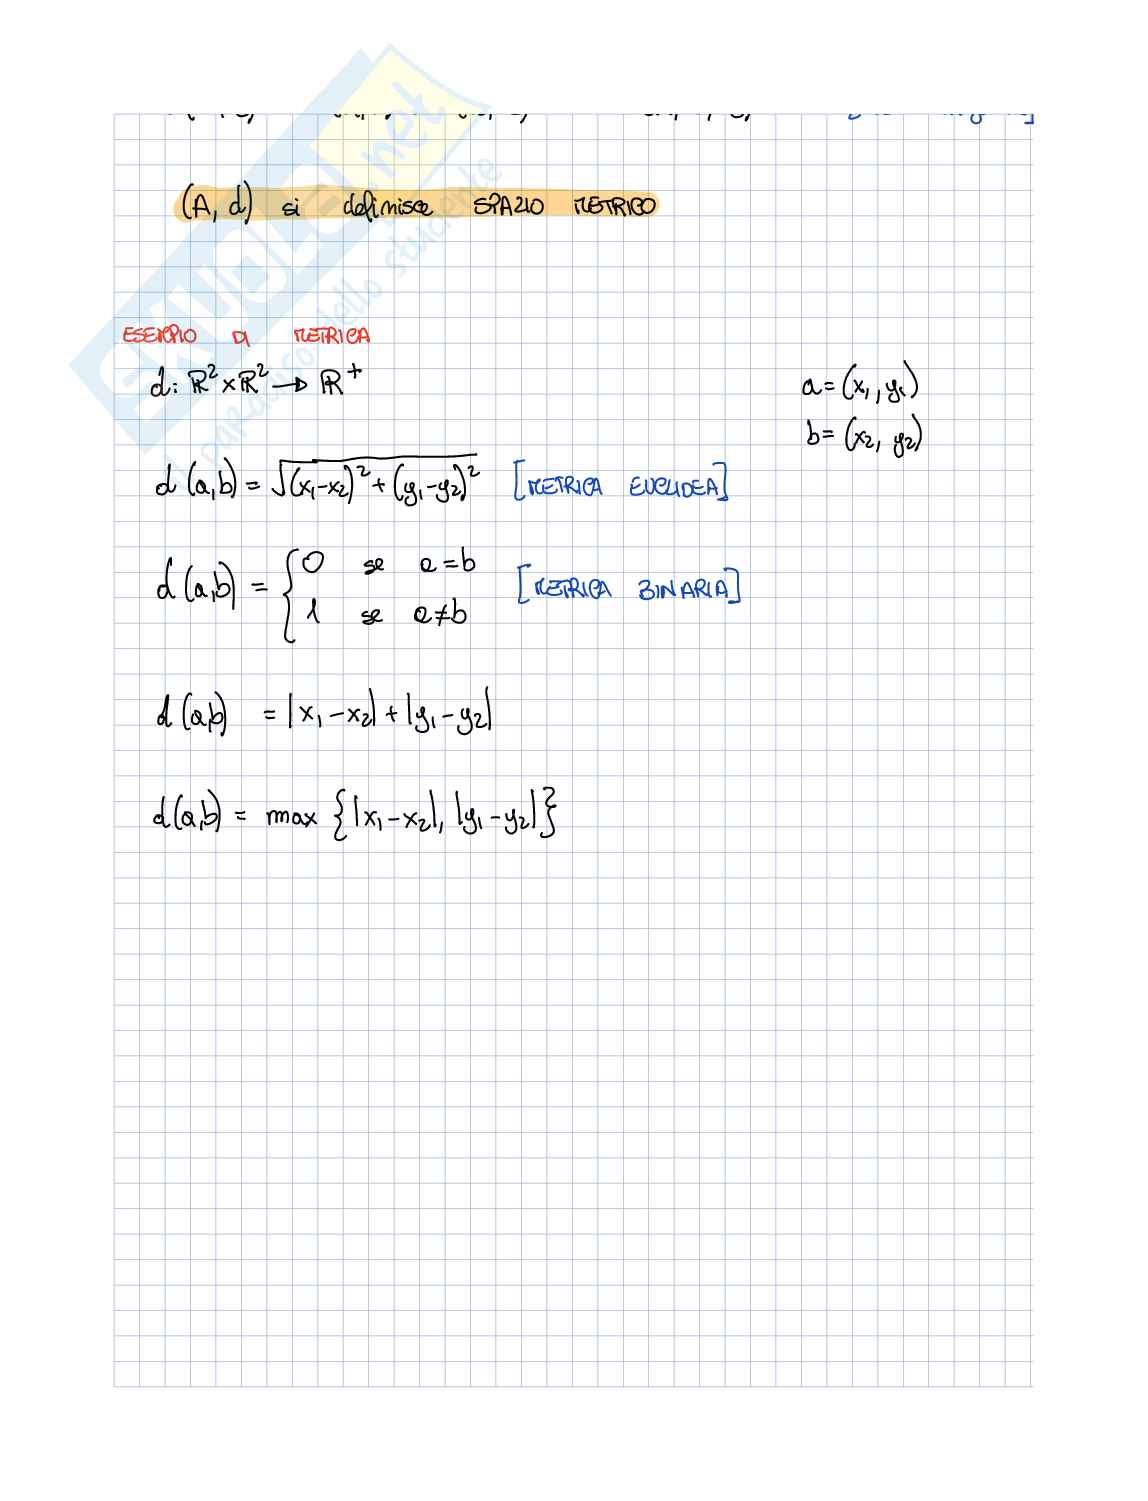 (A, d) si definisce SPAZIO METRICO
ESEMPIO DI METRICA
d: ℝ² × ℝ² → ℝ⁺
a = (x₁, y₁)
b = (x₂, y₂)
d(a,b) = √((x₁-x₂)² + (y₁-y₂)²) [METRICA EUCLIDEA]
d(a,b) = { 0 se a = b
1 se a ≠ b [METRICA BINARIA]
d(a,b) = |x₁ - x₂| + |y₁ - y₂|
d(a,b) = max {|x₁ - x₂|, |y₁ - y₂|}
SKUOLA.net
paradiso dello studente